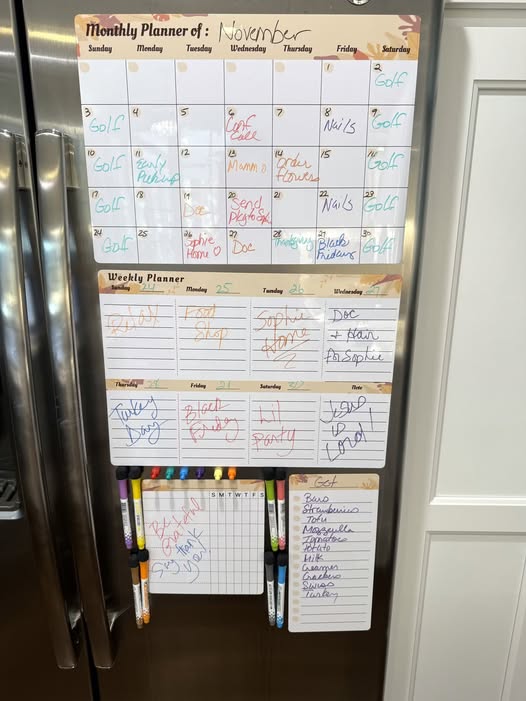 Monthly Planner of: November
Sunday Monday Tuesday Wednesday Thursday Friday Saturday
1 2
Golf
3 4 5 6 7 8 9
Golf Conf Call Nails Golf
10 11 12 13 14 15
Golf Early Pickup Mammo Order Flowers Golf
17 18 19 20 21 22 23
Golf Doc Send Pkg to Nails Golf
24 25 26 27 28 30
Golf Sophie Home Doc Thanksgiving Black Friday Golf
Weekly Planner
Sunday 24 Monday 25 Tuesday 26 Wednesday 27
Relax Food Shop Sophie Home Doc + Hair for Sophie
Thursday 28 Friday Saturday Note
Turkey Day Black Friday Lil Party Jesus is Lord!
S M T W T F S
Be
Grateful
Say thank
you!
Get
Bars
Strawberries
Tofu
Mozzarella
Tomatoes
Potato
Milk
Creamer
Crackers
Swiss
Turkey